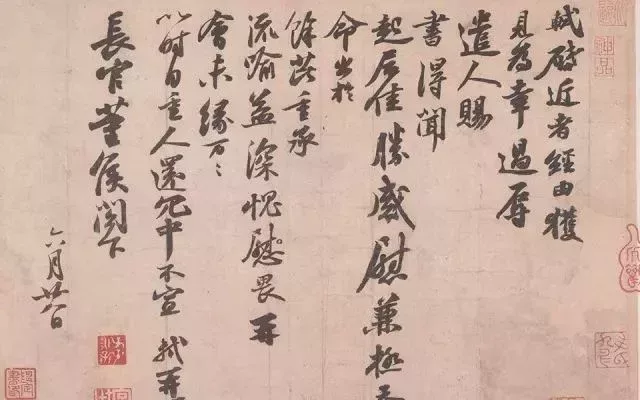 軾啟近者經由獲
見為幸過辱
遣人賜
書得聞
起居佳勝感慰兼極
命出於
餘芘重承
流喻益深愧慰畏再
會未緣萬〻
以時自重人還冗中不宣 軾再
長官董侯閣下
六月廿八日